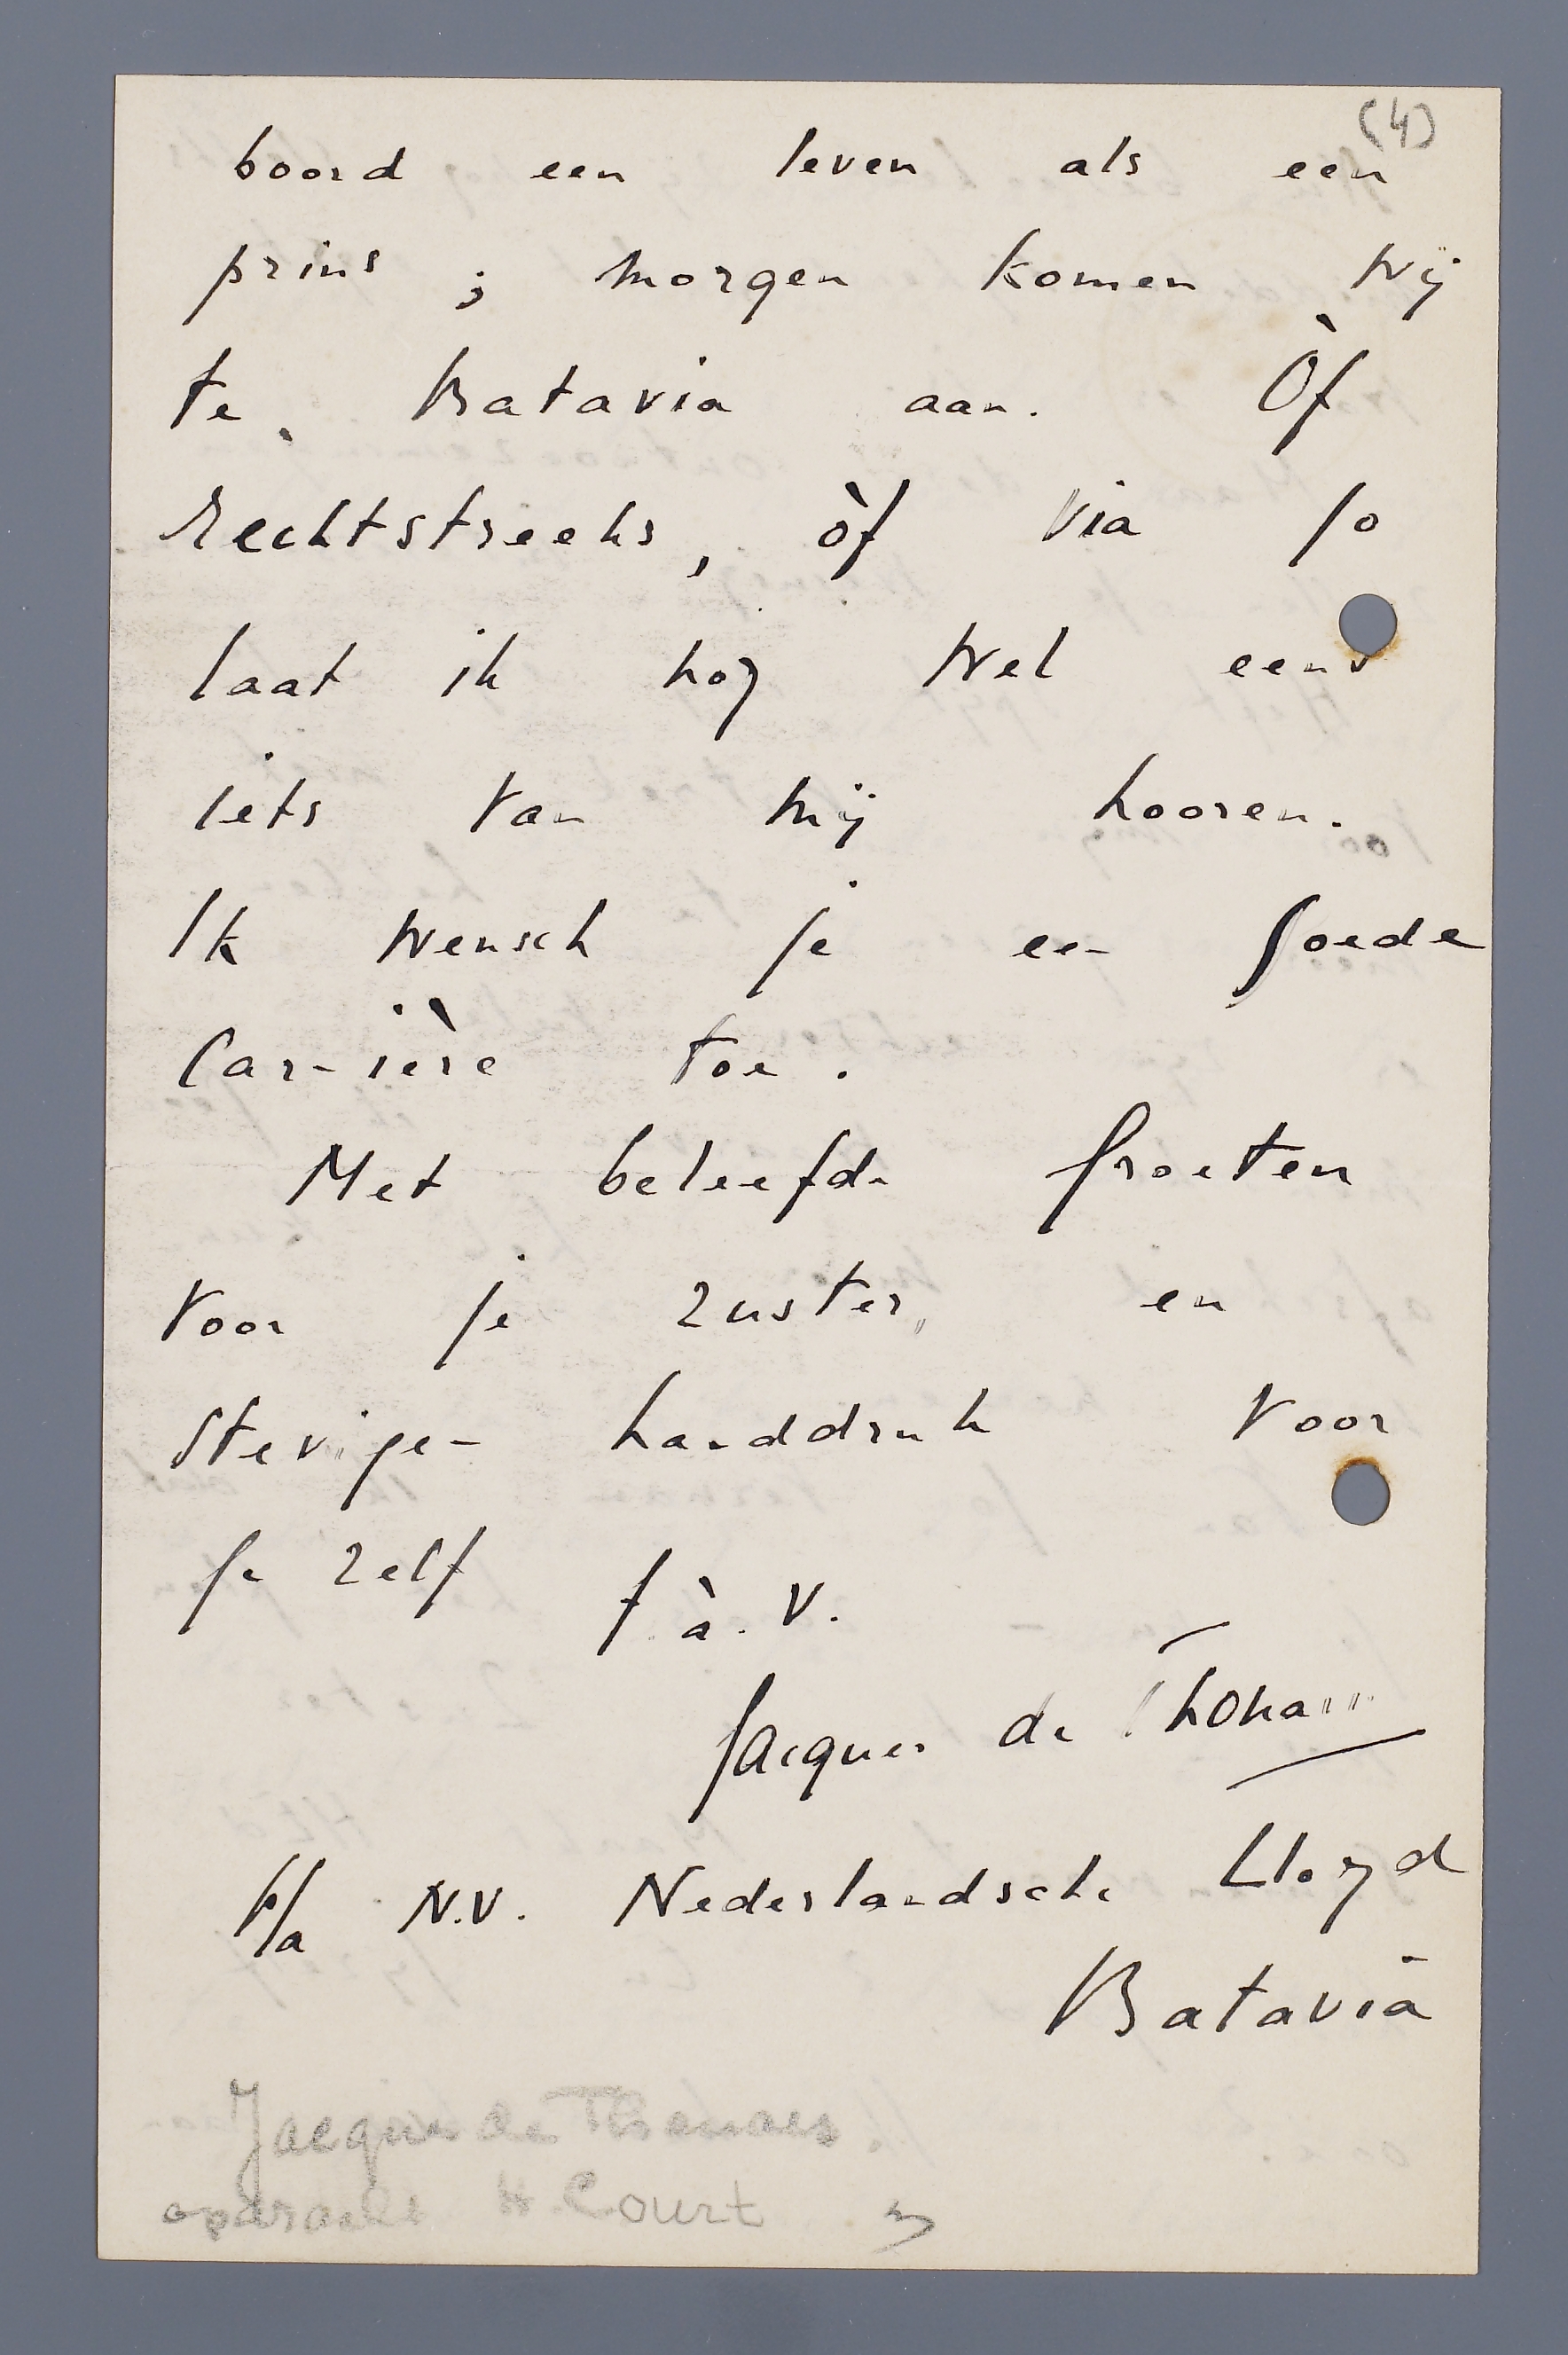 (4)
boord een leven als een
prins ; morgen komen wij
te Batavia aan. Òf
rechtstreeks, òf via Jo
laat ik nog wel eens
iets van mij hooren.
Ik wensch je een goede
carrière toe.
Met beleefde groeten
voor je zuster, en
stevigen handdruk voor
je zelf
t. à. v.
Jacques de
p/a N.V. Nederlandsche Lloyd
Batavia
Jacques de
H. Court